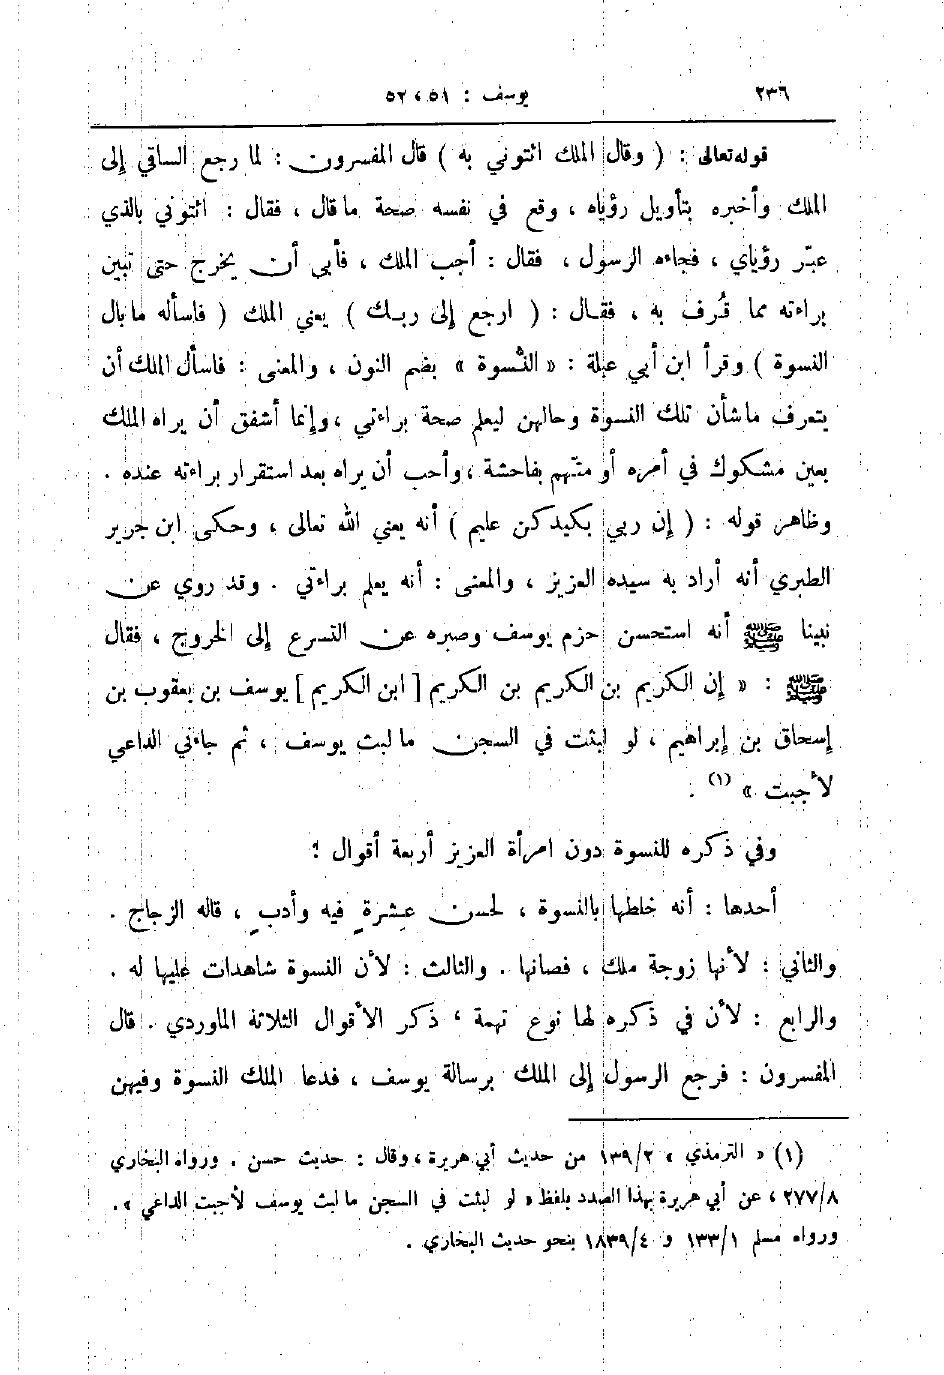 ٢٣٦ يوسف : ٥١ ، ٥٢
قوله تعالى : ( وقال الملك ائتوني به ) قال المفسرون : لما رجع الساقي إلى
الملك وأخبره بتأويل رؤياه ، وقع في نفسه صحة ما قال ، فقال : ائتوني بالذي
عبّر رؤياي ، فجاءه الرسول ، فقال : أجب الملك ، فأبى أن يخرج حتى تبين
براءته مما قُرف به ، فقـال : ( ارجع إلى ربـك ) يعني الملك ( فاسأله ما بال
النسوة ) وقرأ ابن أبي عبلة : « النُّسوة » بضم النون ، والمعنى : فاسأل الملك أن
يتعرف ما شأن تلك النسوة وحالهن ليعلم صحة براءتي ، وإنما أشفق أن يراه الملك
بعين مشكوك في أمره أو متّهم بفاحشة ، وأحب أن يراه بعد استقرار براءته عنده .
وظاهر قوله : ( إن ربي بكيدكن عليم ) أنه يعني الله تعالى ، وحكى ابن جرير
الطبري أنه أراد به سيده العزيز ، والمعنى : أنه يعلم براءتي . وقد روي عن
نبينا ﷺ أنه استحسن حزم يوسف وصبره عن التسرع إلى الخروج ، فقال
ﷺ : « إن الكريم بن الكريم بن الكريم [ ابن الكريم ] يوسف بن يعقوب بن
إسحاق بن إبراهيم ، لو لبثت في السجن ما لبث يوسف ، ثم جاءني الداعي
لأجبت » (١) .
وفي ذكره للنسوة دون امرأة العزيز أربعة أقوال :
أحدها : أنه خلطها بالنسوة ، لحسن عِشرةٍ فيه وأدبٍ ، قاله الزجاج .
والثاني : لأنها زوجة ملك ، فصانها . والثالث : لأن النسوة شاهدات عليها له .
والرابع : لأن في ذكره لها نوع تهمة ، ذكر الأقوال الثلاثة الماوردي . قال
المفسرون : فرجع الرسول إلى الملك برسالة يوسف ، فدعا الملك النسوة وفيهن
(١) « الترمذي » ١٣٩/٢ من حديث أبي هريرة ، وقال : حديث حسن . ورواه البخاري
٢٧٧/٨ ، عن أبي هريرة بهذا الصدد بلفظ « لو لبثت في السجن ما لبث يوسف لأجبت الداعي » .
ورواه مسلم ١٣٣/١ و ١٨٣٩/٤ بنحو حديث البخاري .